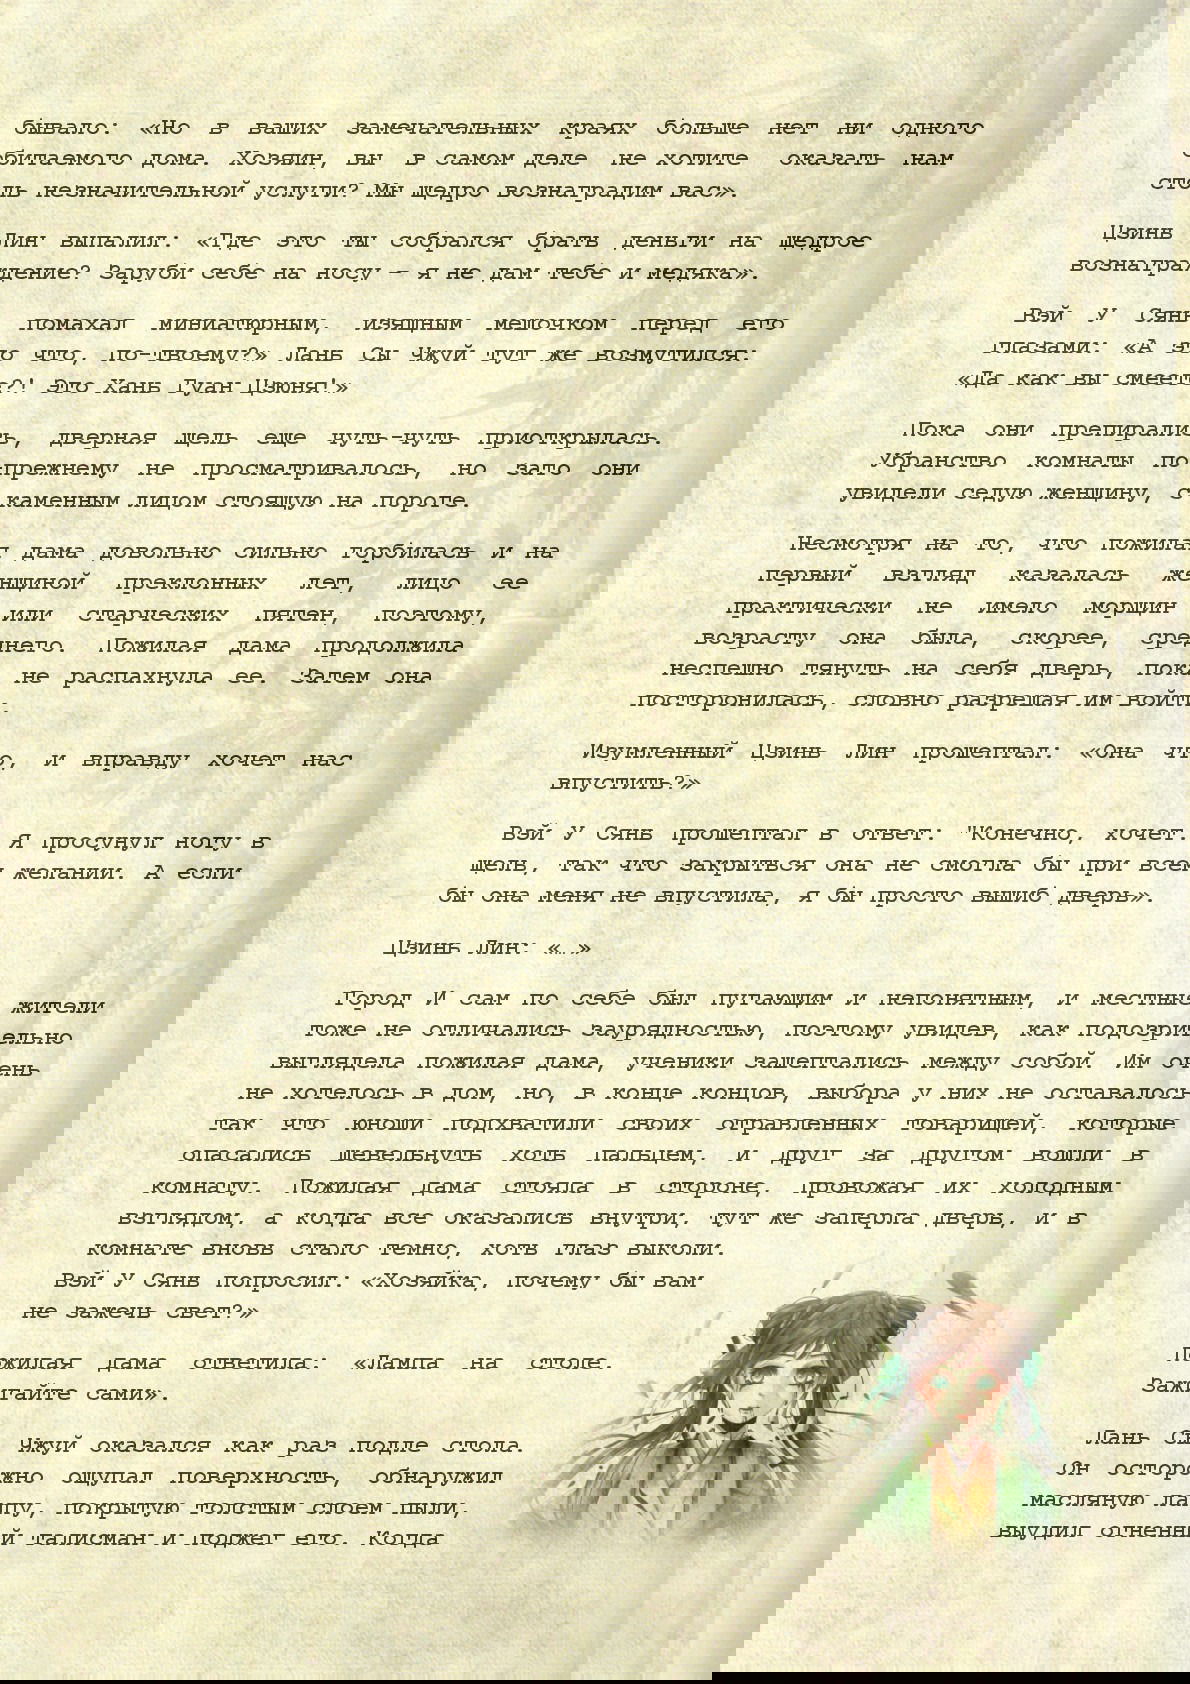 бывало: «Но в ваших замечательных краях больше нет ни одного
обитаемого дома. Хозяин, вы в самом деле не хотите оказать нам
столь незначительной услуги? Мы щедро вознаградим вас».
Цзинь Лин выпалил: «Где это ты собрался брать деньги на щедрое
вознаграждение? Заруби себе на носу — я не дам тебе и медяка».
Вэй У Сянь помахал миниатюрным, изящным мешочком перед его
глазами: «А это что, по-твоему?» Лань Сы Чжуй тут же возмутился:
«Да как вы смеете?! Это Хань Гуан Цзюня!»
Пока они препирались, дверная щель еще чуть-чуть приоткрылась.
Убранство комнаты по-прежнему не просматривалось, но зато они
увидели седую женщину, с каменным лицом стоящую на пороге.
Несмотря на то, что пожилая дама довольно сильно горбилась и на
первый взгляд казалась женщиной преклонных лет, лицо ее
практически не имело морщин или старческих пятен, поэтому,
возрасту она была, скорее, среднего. Пожилая дама продолжила
неспешно тянуть на себя дверь, пока не распахнула ее. Затем она
посторонилась, словно разрешая им войти.
Изумленный Цзинь Лин прошептал: «Она что, и вправду хочет нас
впустить?»
Вэй У Сянь прошептал в ответ: "Конечно, хочет. Я просунул ногу в
щель, так что закрыться она не смогла бы при всем желании. А если
бы она меня не впустила, я бы просто вышиб дверь».
Цзинь Лин: «…»
Город И сам по себе был пугающим и непонятным, и местные жители
тоже не отличались заурядностью, поэтому увидев, как подозрительно
выглядела пожилая дама, ученики зашептались между собой. Им очень
не хотелось в дом, но, в конце концов, выбора у них не оставалось,
так что юноши подхватили своих отравленных товарищей, которые
опасались шевельнуть хоть пальцем, и друг за другом вошли в
комнату. Пожилая дама стояла в стороне, провожая их холодным
взглядом, а когда все оказались внутри, тут же заперла дверь, и в
комнате вновь стало темно, хоть глаз выколи.
Вэй У Сянь попросил: «Хозяйка, почему бы вам
не зажечь свет?»
Пожилая дама ответила: «Лампа на столе.
Зажигайте сами».
Лань Сы Чжуй оказался как раз подле стола.
Он осторожно ощупал поверхность, обнаружил
масляную лампу, покрытую толстым слоем пыли,
выудил огненный талисман и поджег его. Когда